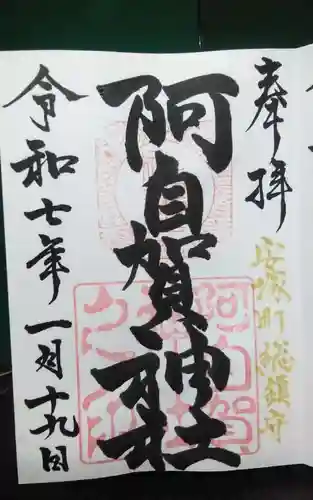 奉拝
安塚町総鎮守
阿自賀神社
令和七年一月十九日
阿自賀
神社
之印